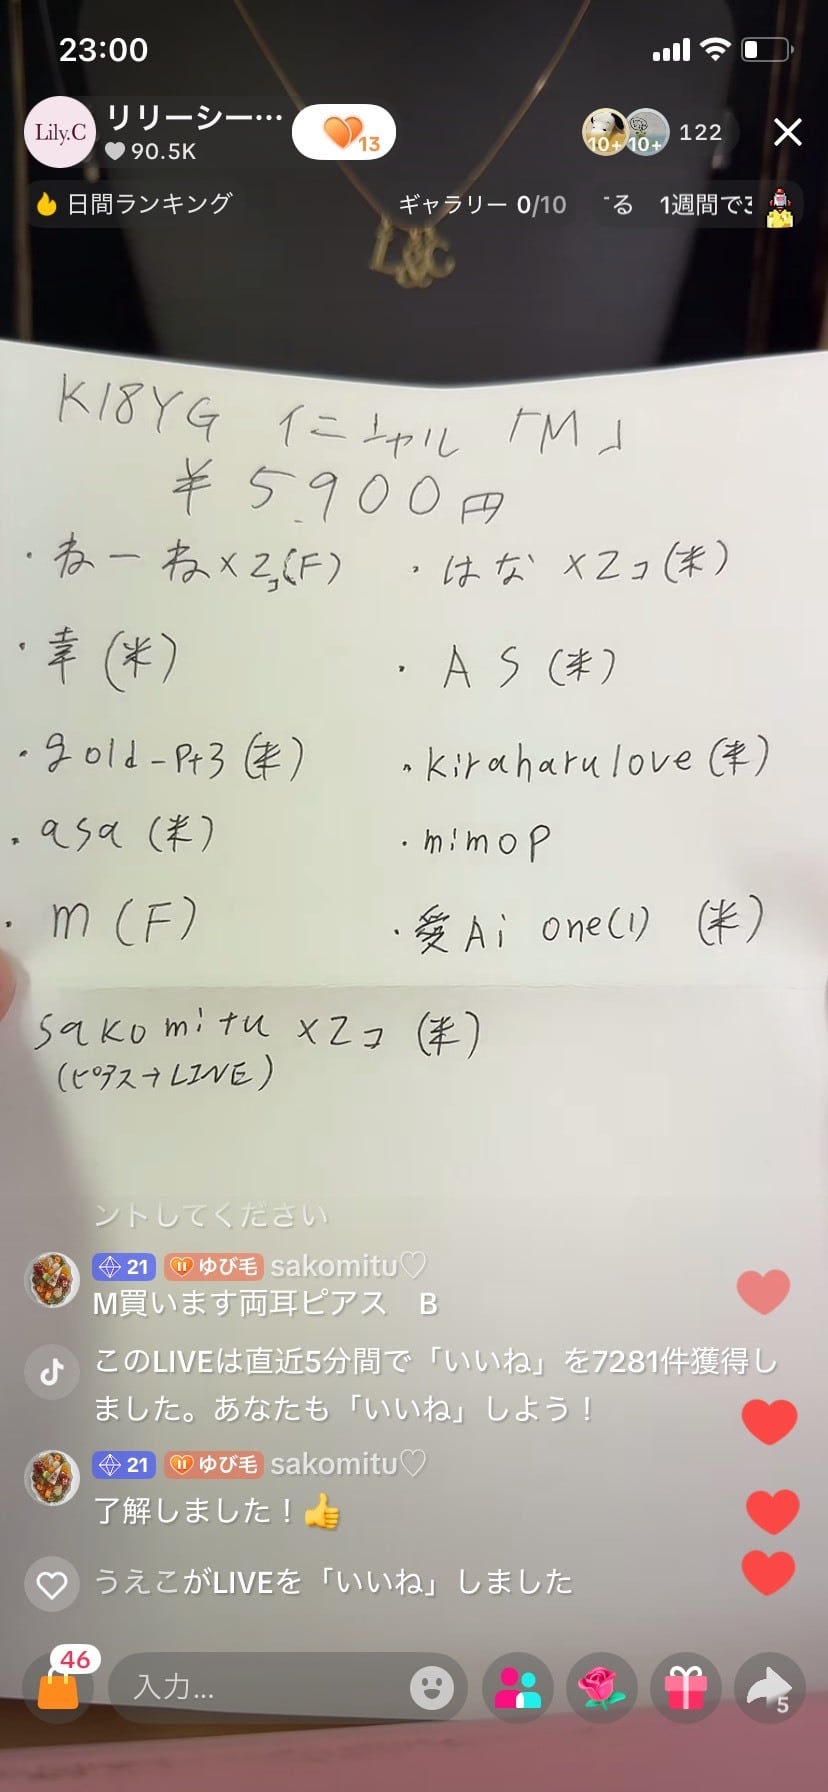 23:00
Lily.C
リリーシー…
90.5K
13
10+
10+
122
日間ランキング
ギャラリー 0/10
てる 1週間で3
L&C
K18YG イニシャル「M」
¥5,900円
・ねーね×2コ(F) ・はな×2コ(米)
・幸(米) ・AS(米)
・gold-Pt3(米) ・kiraharulove(米)
・asa(米) ・mimop
・m(F) ・愛Ai one(1) (米)
sakomitu×2コ(米)
(ピアス→LINE)
ントしてください
21 ゆび毛 sakomitu♡
M買います両耳ピアス B
このLIVEは直近5分間で「いいね」を7281件獲得し
ました。あなたも「いいね」しよう！
21 ゆび毛 sakomitu♡
了解しました！👍
うえこがLIVEを「いいね」しました
46
入力...
5